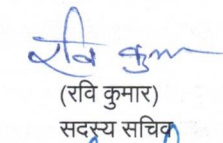 रवि कुमार
(रवि कुमार)
सदस्य सचिव